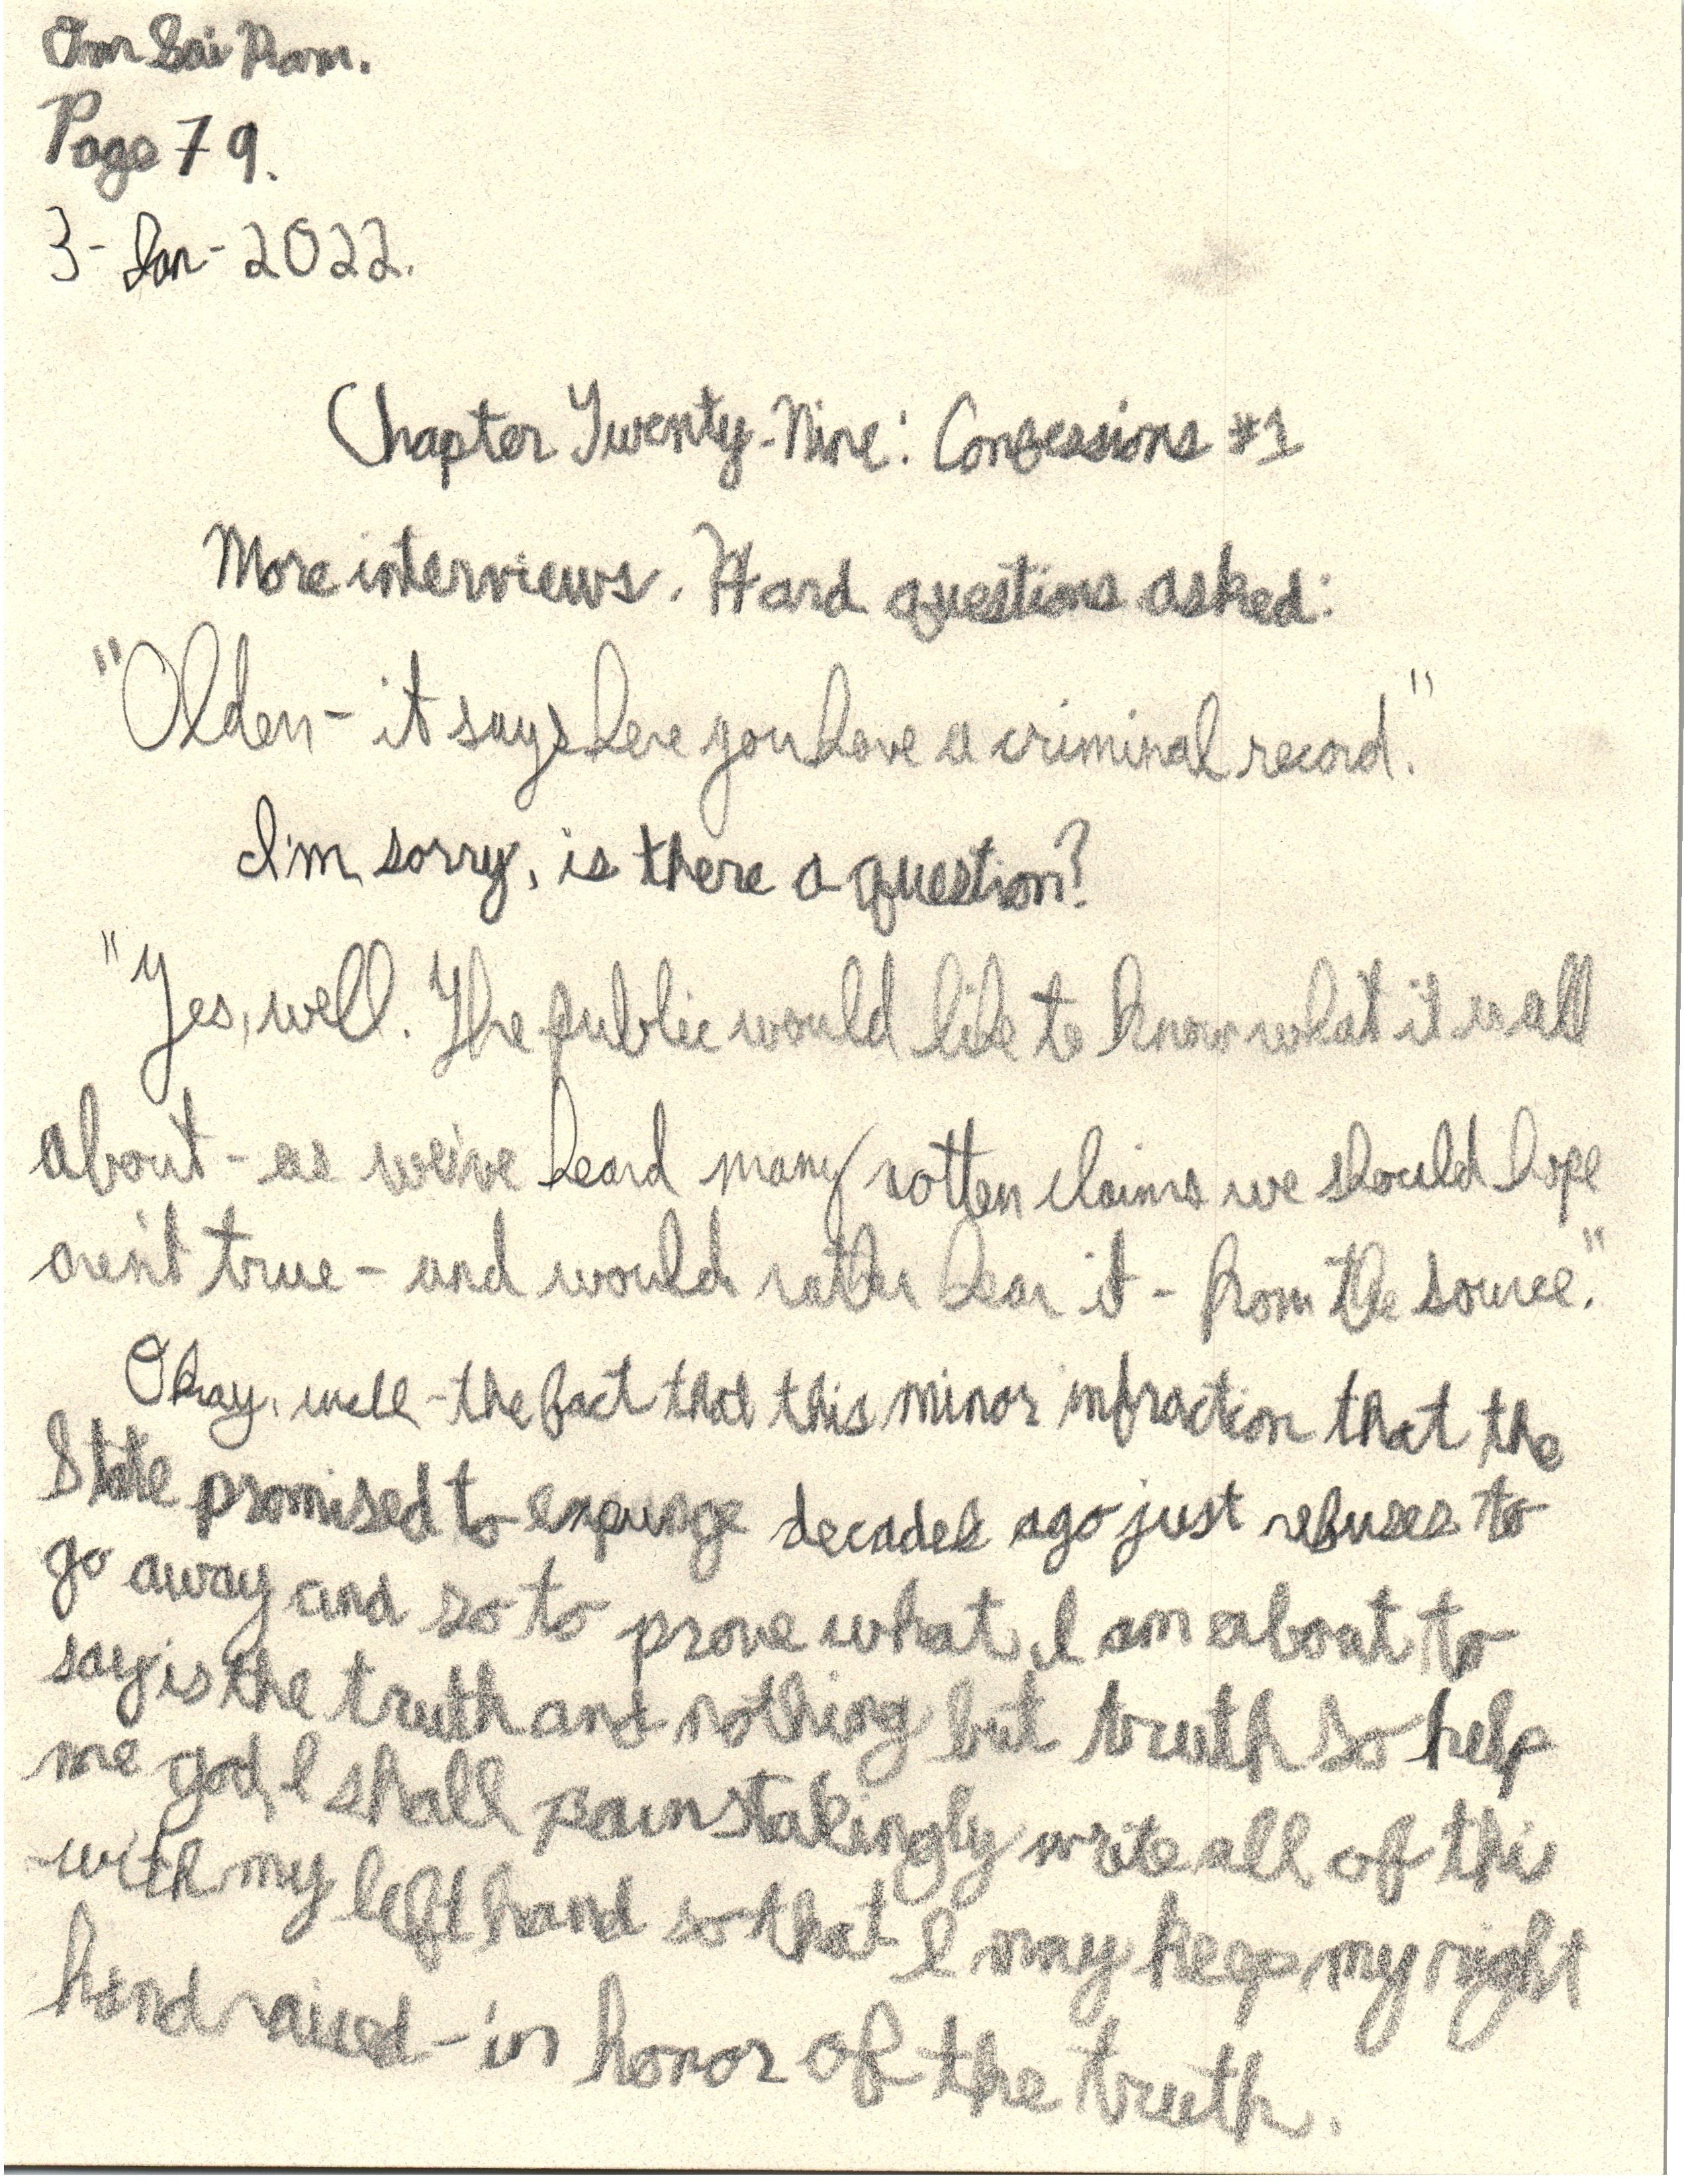 Om Sai Ram.
Page 79.
3-Jan-2022.
Chapter Twenty-Nine: Confessions #1
More interviews. Hard questions asked:
"Olden- it says here you have a criminal record."
I'm sorry, is there a question?
"Yes, well. The public would like to know what it is all
about - as we've heard many rotten claims we should hope
aren't true - and would rather hear it - from the source."
Okay, well - the fact that this minor infraction that the
State promised to expunge decades ago just refuses to
go away and so to prove what I am about to
say is the truth and nothing but truth so help
me god, I shall painstakingly write all of this
with my left hand so that I may keep my right
hand raised - in honor of the truth.